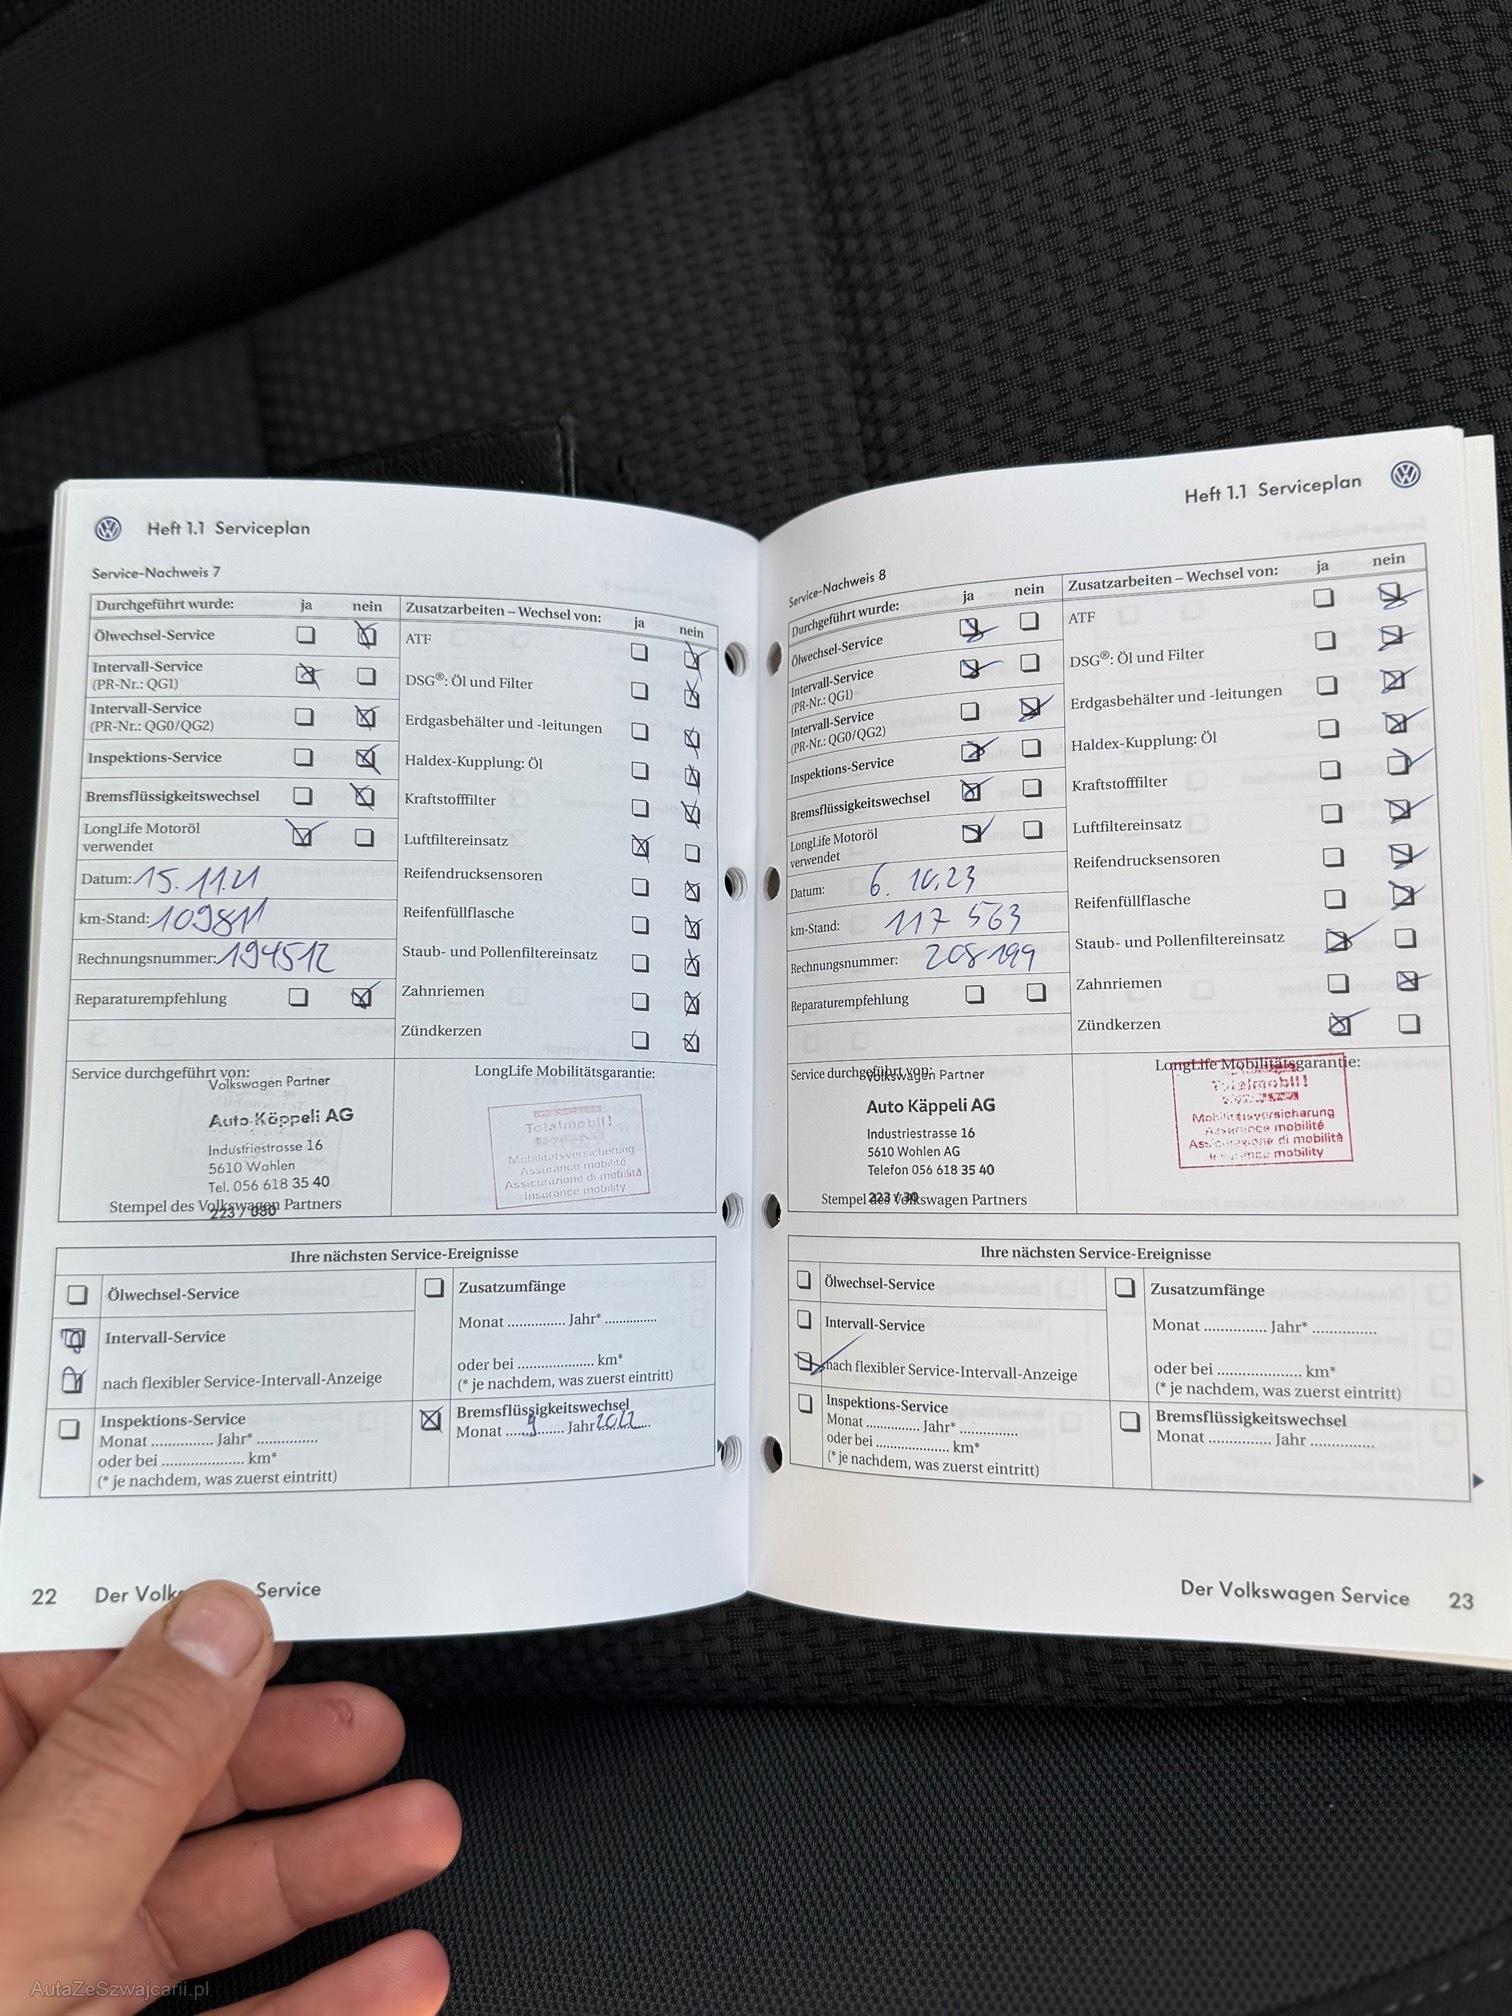 Heft 1.1 Serviceplan
Service-Nachweis 7
Durchgeführt wurde: ja nein
Ölwechsel-Service
Intervall-Service
(PR-Nr.: QG1)
Intervall-Service
(PR-Nr.: QG0/QG2)
Inspektions-Service
Bremsflüssigkeitswechsel
LongLife Motoröl
verwendet
Datum: 15.11.21
km-Stand: 109811
Rechnungsnummer: 194512
Reparaturempfehlung
Zusatzarbeiten – Wechsel von: ja nein
ATF
DSG®: Öl und Filter
Erdgasbehälter und -leitungen
Haldex-Kupplung: Öl
Kraftstofffilter
Luftfiltereinsatz
Reifendrucksensoren
Reifenfüllflasche
Staub- und Pollenfiltereinsatz
Zahnriemen
Zündkerzen
Service durchgeführt von:
Volkswagen Partner
Auto Käppeli AG
Industriestrasse 16
5610 Wohlen
Tel. 056 618 35 40
Stempel des Volkswagen Partners
223 / 030
LongLife Mobilitätsgarantie:
Totalmobil!
Mobilitätsversicherung
Assurance mobilité
Assicurazione di mobilità
Insurance mobility
Ihre nächsten Service-Ereignisse
Ölwechsel-Service
Intervall-Service
nach flexibler Service-Intervall-Anzeige
Inspektions-Service
Monat ............... Jahr* ...............
oder bei .................... km*
(* je nachdem, was zuerst eintritt)
Zusatzumfänge
Monat .............. Jahr* .............
oder bei ................... km*
(* je nachdem, was zuerst eintritt)
Bremsflüssigkeitswechsel
Monat .....9....... Jahr 2022....
22 Der Volks Service
Heft 1.1 Serviceplan
Service-Nachweis 8
Durchgeführt wurde: ja nein
Ölwechsel-Service
Intervall-Service
(PR-Nr.: QG1)
Intervall-Service
(PR-Nr.: QG0/QG2)
Inspektions-Service
Bremsflüssigkeitswechsel
LongLife Motoröl
verwendet
Datum: 6.10.23
km-Stand: 117 563
Rechnungsnummer: 208199
Reparaturempfehlung
Zusatzarbeiten – Wechsel von: ja nein
ATF
DSG®: Öl und Filter
Erdgasbehälter und -leitungen
Haldex-Kupplung: Öl
Kraftstofffilter
Luftfiltereinsatz
Reifendrucksensoren
Reifenfüllflasche
Staub- und Pollenfiltereinsatz
Zahnriemen
Zündkerzen
Service durchgeführt von:
Volkswagen Partner
Auto Käppeli AG
Industriestrasse 16
5610 Wohlen AG
Telefon 056 618 35 40
Stempel des Volkswagen Partners
223 / 30
LongLife Mobilitätsgarantie:
Totalmobil!
Mobilitätsversicherung
Assurance mobilité
Assicurazione di mobilità
Insurance mobility
Ihre nächsten Service-Ereignisse
Ölwechsel-Service
Intervall-Service
nach flexibler Service-Intervall-Anzeige
Inspektions-Service
Monat ............... Jahr* ...............
oder bei .................... km*
(* je nachdem, was zuerst eintritt)
Zusatzumfänge
Monat .............. Jahr* ...............
oder bei .................... km*
(* je nachdem, was zuerst eintritt)
Bremsflüssigkeitswechsel
Monat .............. Jahr ...............
Der Volkswagen Service 23
AutaZeSzwajcarii.pl